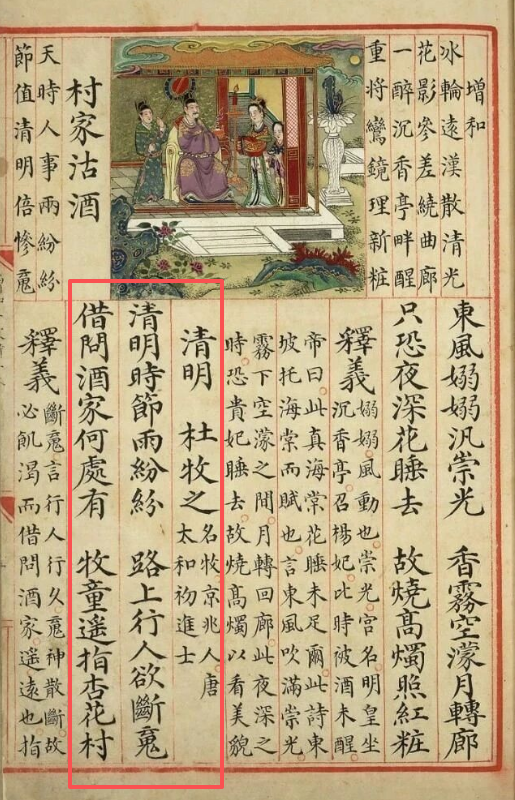 增和
冰輪遠漢散清光
花影參差繞曲廊
一醉沉香亭畔醒
重將鸞鏡理新粧
村家沽酒
天時人事兩紛紛
節值清明倍慘䰟
東風嫋嫋汎崇光 香霧空濛月轉廊
只恐夜深花睡去 故燒髙燭照紅粧
釋義 嫋嫋風動也崇光宮名明皇坐
沉香亭召楊妃此時被酒未醒
帝曰此真海棠花睡未足爾此詩東
坡托海棠而賦也言東風吹滿崇光
霧下空濛之間月轉回廊此夜深之
時恐貴妃睡去故燒髙燭以看美貌
清明 杜牧之 名牧京兆人唐
太和初進士
清明時節雨紛紛 路上行人欲斷䰟
借問酒家何處有 牧童遥指杏花村
釋義 斷䰟言行人行久䰟神散斷故
必飢渴而借問酒家遥遠也指